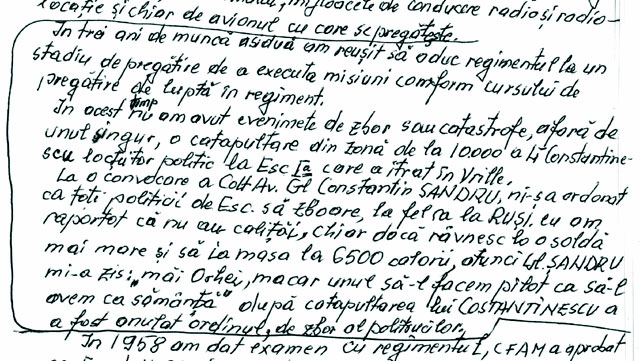 locație și chiar de avionul cu care se pregătește.
In trei ani de muncă asiduă am reușit să aduc regimentul la un
stadiu de pregătire de a executa misiuni comform cursului de
pregătire de luptă în regiment.
In acest timp nu am avut evenimete de zbor sau catastrofe, aforă de
unul singur, o catapultare din zonă de la 10000 a Lt Constantine-
scu locțiitor politic la Esc Ia care a itrat în Vrille.
La o convocare a CdtAv. Gl Constantin SANDRU, ni-s-a ordonat
ca toți politicii de Esc. să zboare, la fel ca la RUȘI. eu am
raportat că nu au calități, chiar dacă râvnesc la o soldă
mai mare și să ia masa la 6500 calorii, atunci Gl SANDRU
mi-a zis: "măi Orhei, macar unul să-l facem pilot ca să-l
avem ca sămânță" după catapultarea lui COSTANTINESCU a
a fost anulat ordinul, de zbor al politicilor.
In 1958 am dat examen cu regimentul, CFAM a aprobat